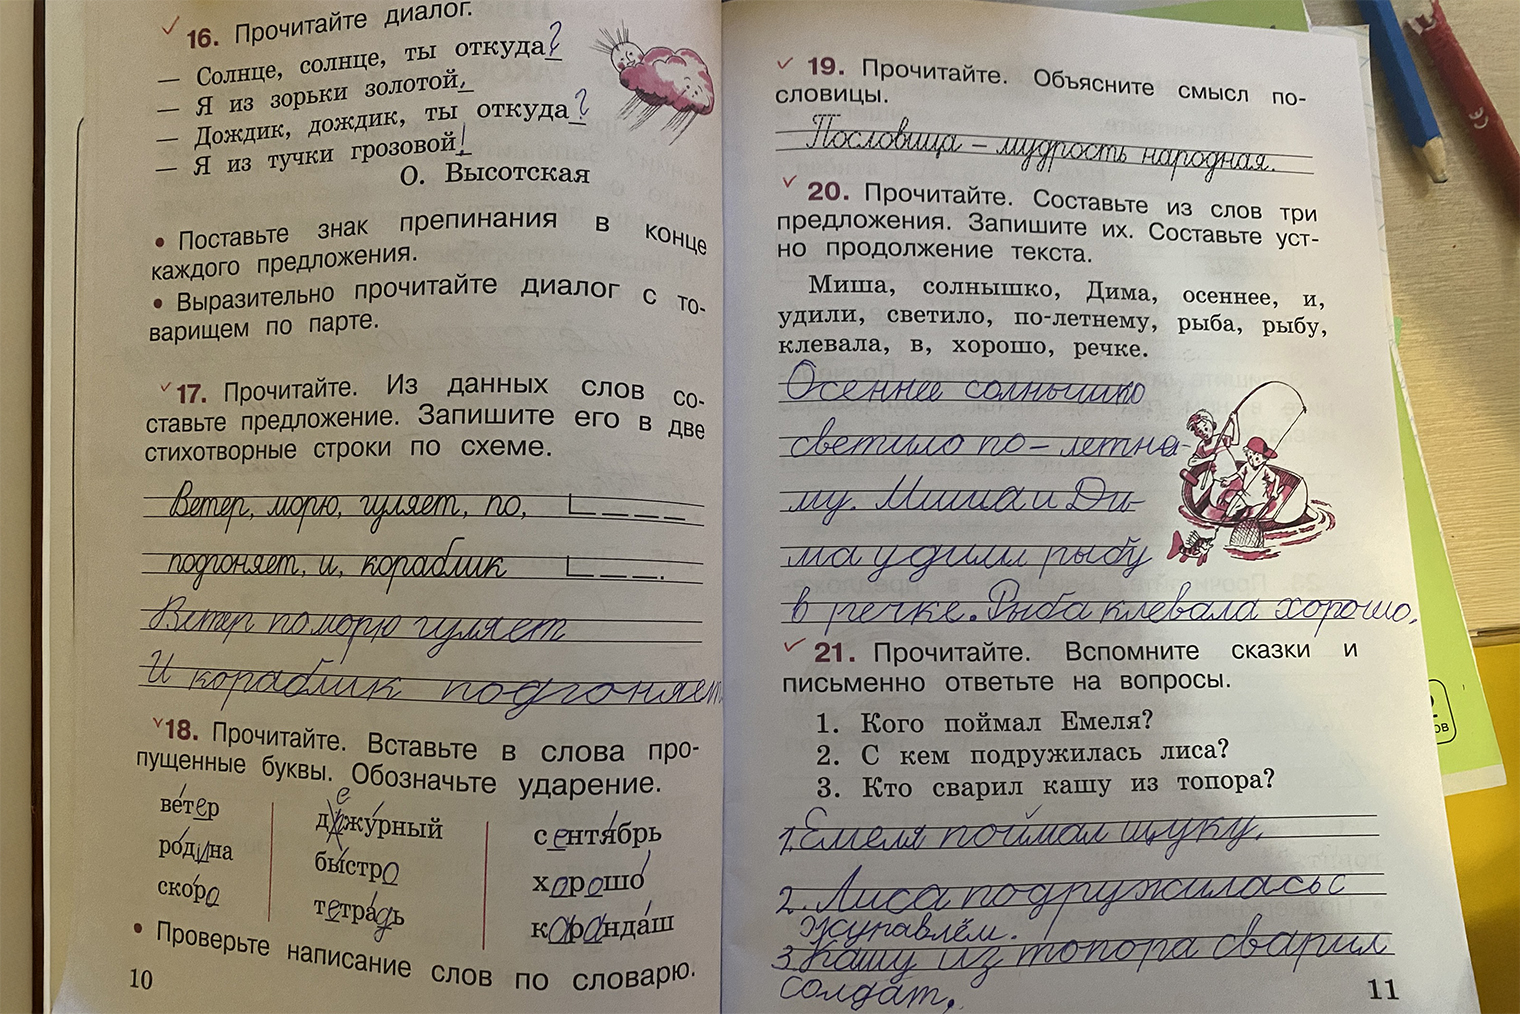 16. Прочитайте диалог.
— Солнце, солнце, ты откуда?
— Я из зорьки золотой.
— Дождик, дождик, ты откуда?
— Я из тучки грозовой!
О. Высотская
• Поставьте знак препинания в конце
каждого предложения.
• Выразительно прочитайте диалог с то-
варищем по парте.
17. Прочитайте. Из данных слов со-
ставьте предложение. Запишите его в две
стихотворные строки по схеме.
Ветер, морю, гуляет, по,
подгоняет, и, кораблик
Ветер по морю гуляет
И кораблик подгоняет
18. Прочитайте. Вставьте в слова про-
пущенные буквы. Обозначьте ударение.
ве́тер
ро́дина
ско́ро
дежу́рный
бы́стро
тетра́дь
сентя́брь
хорошо́
каранда́ш
• Проверьте написание слов по словарю.
10
19. Прочитайте. Объясните смысл по-
словицы.
Пословица – мудрость народная.
20. Прочитайте. Составьте из слов три
предложения. Запишите их. Составьте уст-
но продолжение текста.
Миша, солнышко, Дима, осеннее, и,
удили, светило, по-летнему, рыба, рыбу,
клевала, в, хорошо, речке.
Осеннее солнышко
светило по-летне-
му. Миша и Ди-
ма удили рыбу
в речке. Рыба клевала хорошо.
21. Прочитайте. Вспомните сказки и
письменно ответьте на вопросы.
1. Кого поймал Емеля?
2. С кем подружилась лиса?
3. Кто сварил кашу из топора?
1. Емеля поймал щуку.
2. Лиса подружилась с
журавлём.
3. Кашу из топора сварил
солдат.
11